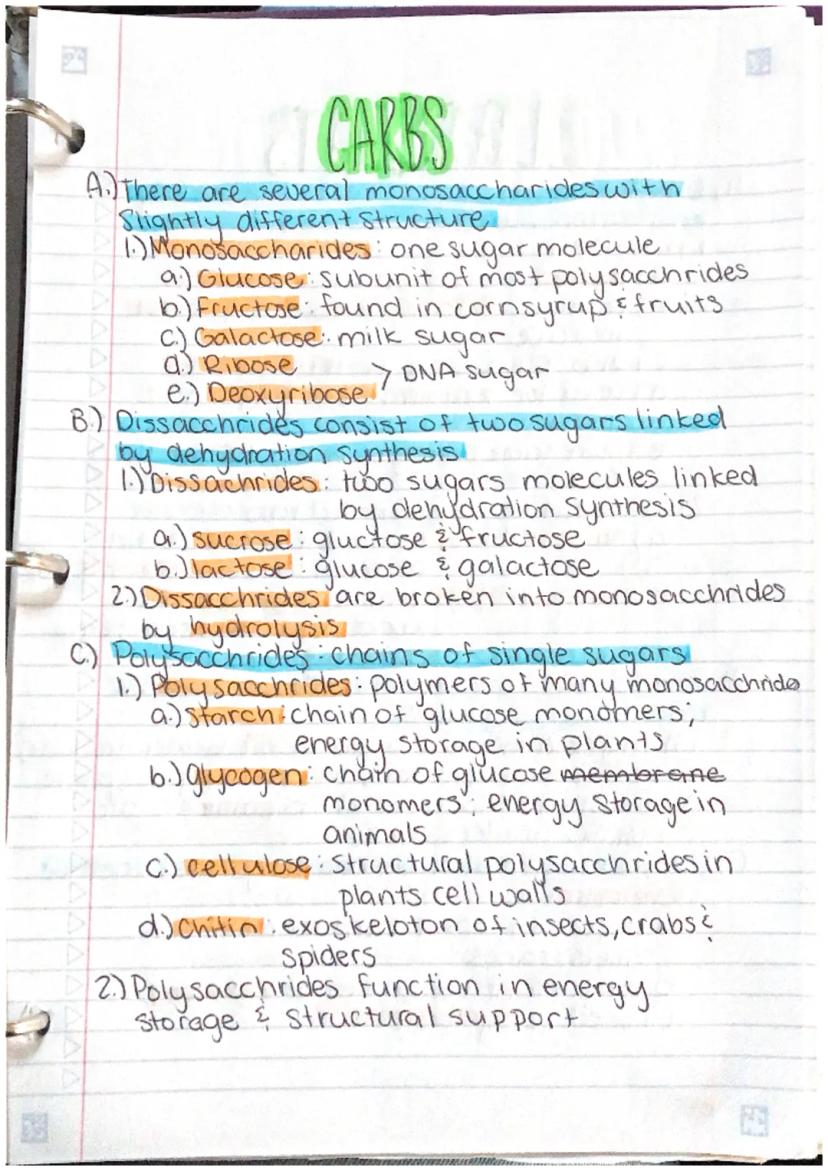 CARBS
A.) There are several monosaccharides with
slightly different structure
1.) Monosaccharides: one sugar molecule
a.) Glucose: subunit of most polysacchrides
b.) Fructose: found in cornsyrup & fruits
c.) Galactose: milk sugar
d.) Ribose
> DNA sugar
e.) Deoxyribose
B.) Dissacchrides consist of two sugars linked
by dehydration synthesis
1.) Dissachrides: two sugars molecules linked
by dehydration synthesis
a.) sucrose: gluctose & fructose
b.) lactose: glucose & galactose
2.) Dissacchrides are broken into monosacchrides
by hydrolysis
C.) Polysacchrides: chains of single sugars
1.) Polysacchrides: polymers of many monosacchride
a.) Starch: chain of glucose monomers;
energy storage in plants
b.) Glycogen: chain of glucose membrane
monomers; energy storage in
animals
c.) cellulose: structural polysacchrides in
plants cell walls
d.) Chitin: exoskeloton of insects, crabs &
spiders
2.) Polysacchrides function in energy
storage & structural support